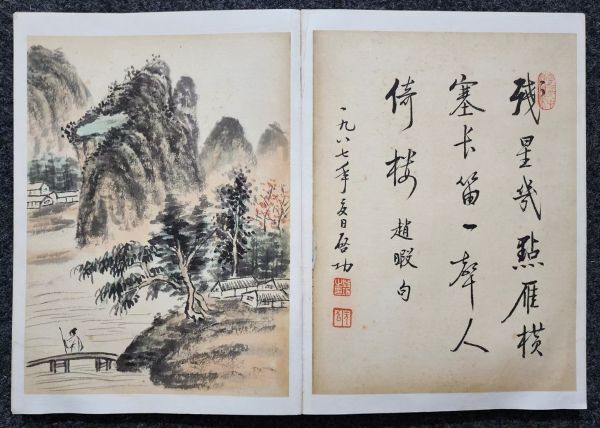 残星幾點雁横
塞长笛一聲人
倚楼 趙嘏句
一九八七年夏日启功